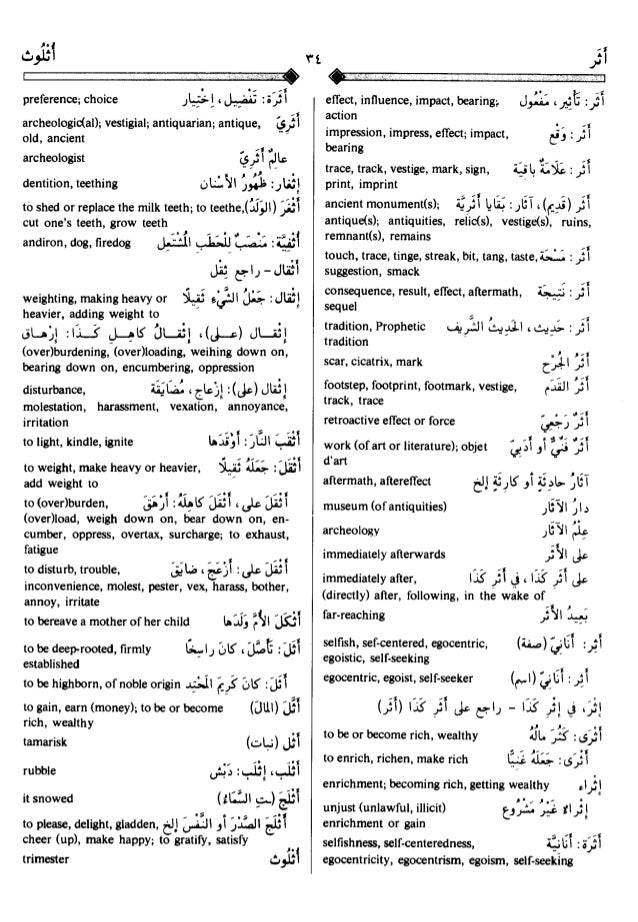 أَثَر ٣٤ أُثْلُوث
effect, influence, impact, bearing; أَثَر: تَأْثِير، مَفْعُول
action
impression, impress, effect; impact, أَثَر: وَقْع
bearing
trace, track, vestige, mark, sign, أَثَر: عَلَامَةٌ بَاقِيَة
print, imprint
ancient monument(s); أَثَر (قَدِيم)، آثَار: بَقَايَا أَثَرِيَّة
antique(s); antiquities, relic(s), vestige(s), ruins,
remnant(s), remains
touch, trace, tinge, streak, bit, tang, taste, أَثَر: مَسْحَة
suggestion, smack
consequence, result, effect, aftermath, أَثَر: نَتِيجَة
sequel
tradition, Prophetic أَثَر: حَدِيث، الحَدِيثُ الشَّرِيف
tradition
scar, cicatrix, mark أَثَرُ الجُرْح
footstep, footprint, footmark, vestige, أَثَرُ القَدَم
track, trace
retroactive effect or force أَثَرٌ رَجْعِيّ
work (of art or literature); objet أَثَرٌ فَنِّيٌّ أو أَدَبِيّ
d'art
aftermath, aftereffect آثَارُ حَادِثَةٍ أو كَارِثَةٍ إلخ
museum (of antiquities) دَارُ الآثَار
archeology عِلْمُ الآثَار
immediately afterwards على الأَثَر
immediately after, على أَثَرِ كَذَا، في أَثَرِ كَذَا
(directly) after, following, in the wake of
far-reaching بَعِيدُ الأَثَر
selfish, sef-centered, egocentric, أَثِر: أَنَانِيّ (صفة)
egoistic, self-seeking
egocentric, egoist, self-seeker أَثِر: أَنَانِيّ (اسم)
إثْرَ، في إثْرِ كَذَا - راجع على أَثَرِ كَذَا (أَثَر)
to be or become rich, wealthy أَثْرَى: كَثُرَ مالُهُ
to enrich, richen, make rich أَثْرَى: جَعَلَهُ غَنِيًّا
enrichment; becoming rich, getting wealthy إثْرَاء
unjust (unlawful, illicit) إثْرَاءٌ غَيْرُ مَشْرُوع
enrichment or gain
selfishness, self-centeredness, أَثَرَة: أَنَانِيَّة
egocentricity, egocentrism, egoism, self-seeking
preference; choice أَثَرَة: تَفْضِيل، اِخْتِيَار
archeologic(al); vestigial; antiquarian; antique, أَثَرِيّ
old, ancient
archeologist عالِمٌ أَثَرِيّ
dentition, teething إثْغَار: ظُهُورُ الأَسْنَان
to shed or replace the milk teeth; to teethe, أَثْغَرَ (الوَلَدُ)
cut one's teeth, grow teeth
andiron, dog, firedog أُثْفِيَّة: مَنْصَبٌ لِلْحَطَبِ المُشْتَعِل
أَثْقَال - راجع ثِقْل
weighting, making heavy or إثْقَال: جَعْلُ الشَّيْءِ ثَقِيلًا
heavier, adding weight to
إثْقَال (على)، إثْقَالُ كاهِلِ كَذَا: إرْهَاق
(over)burdening, (over)loading, weihing down on,
bearing down on, encumbering, oppression
disturbance, إثْقَال (على): إزْعَاج، مُضَايَقَة
molestation, harassment, vexation, annoyance,
irritation
to light, kindle, ignite أَثْقَبَ النَّارَ: أَوْقَدَهَا
to weight, make heavy or heavier, أَثْقَلَ: جَعَلَهُ ثَقِيلًا
add weight to
to (over)burden, أَثْقَلَ على، أَثْقَلَ كاهِلَهُ: أَرْهَقَ
(over)load, weigh down on, bear down on, en-
cumber, oppress, overtax, surcharge; to exhaust,
fatigue
to disturb, trouble, أَثْقَلَ على: أَزْعَجَ، ضَايَقَ
inconvenience, molest, pester, vex, harass, bother,
annoy, irritate
to bereave a mother of her child أَثْكَلَ الأُمَّ وَلَدَهَا
to be deep-rooted, firmly أَثَلَ: تَأَصَّلَ، كانَ راسِخًا
established
to be highborn, of noble origin أَثُلَ: كانَ كَرِيمَ المَحْتِد
to gain, earn (money); to be or become أَثَّلَ (المَالَ)
rich, wealthy
tamarisk أَثْل (نبات)
rubble أَثْلَب، إثْلِب: دَبْش
it snowed أَثْلَجَ (ـتِ السَّمَاءُ)
to please, delight, gladden, أَثْلَجَ الصَّدْرَ أو النَّفْسَ إلخ
cheer (up), make happy; to gratify, satisfy
trimester أُثْلُوث